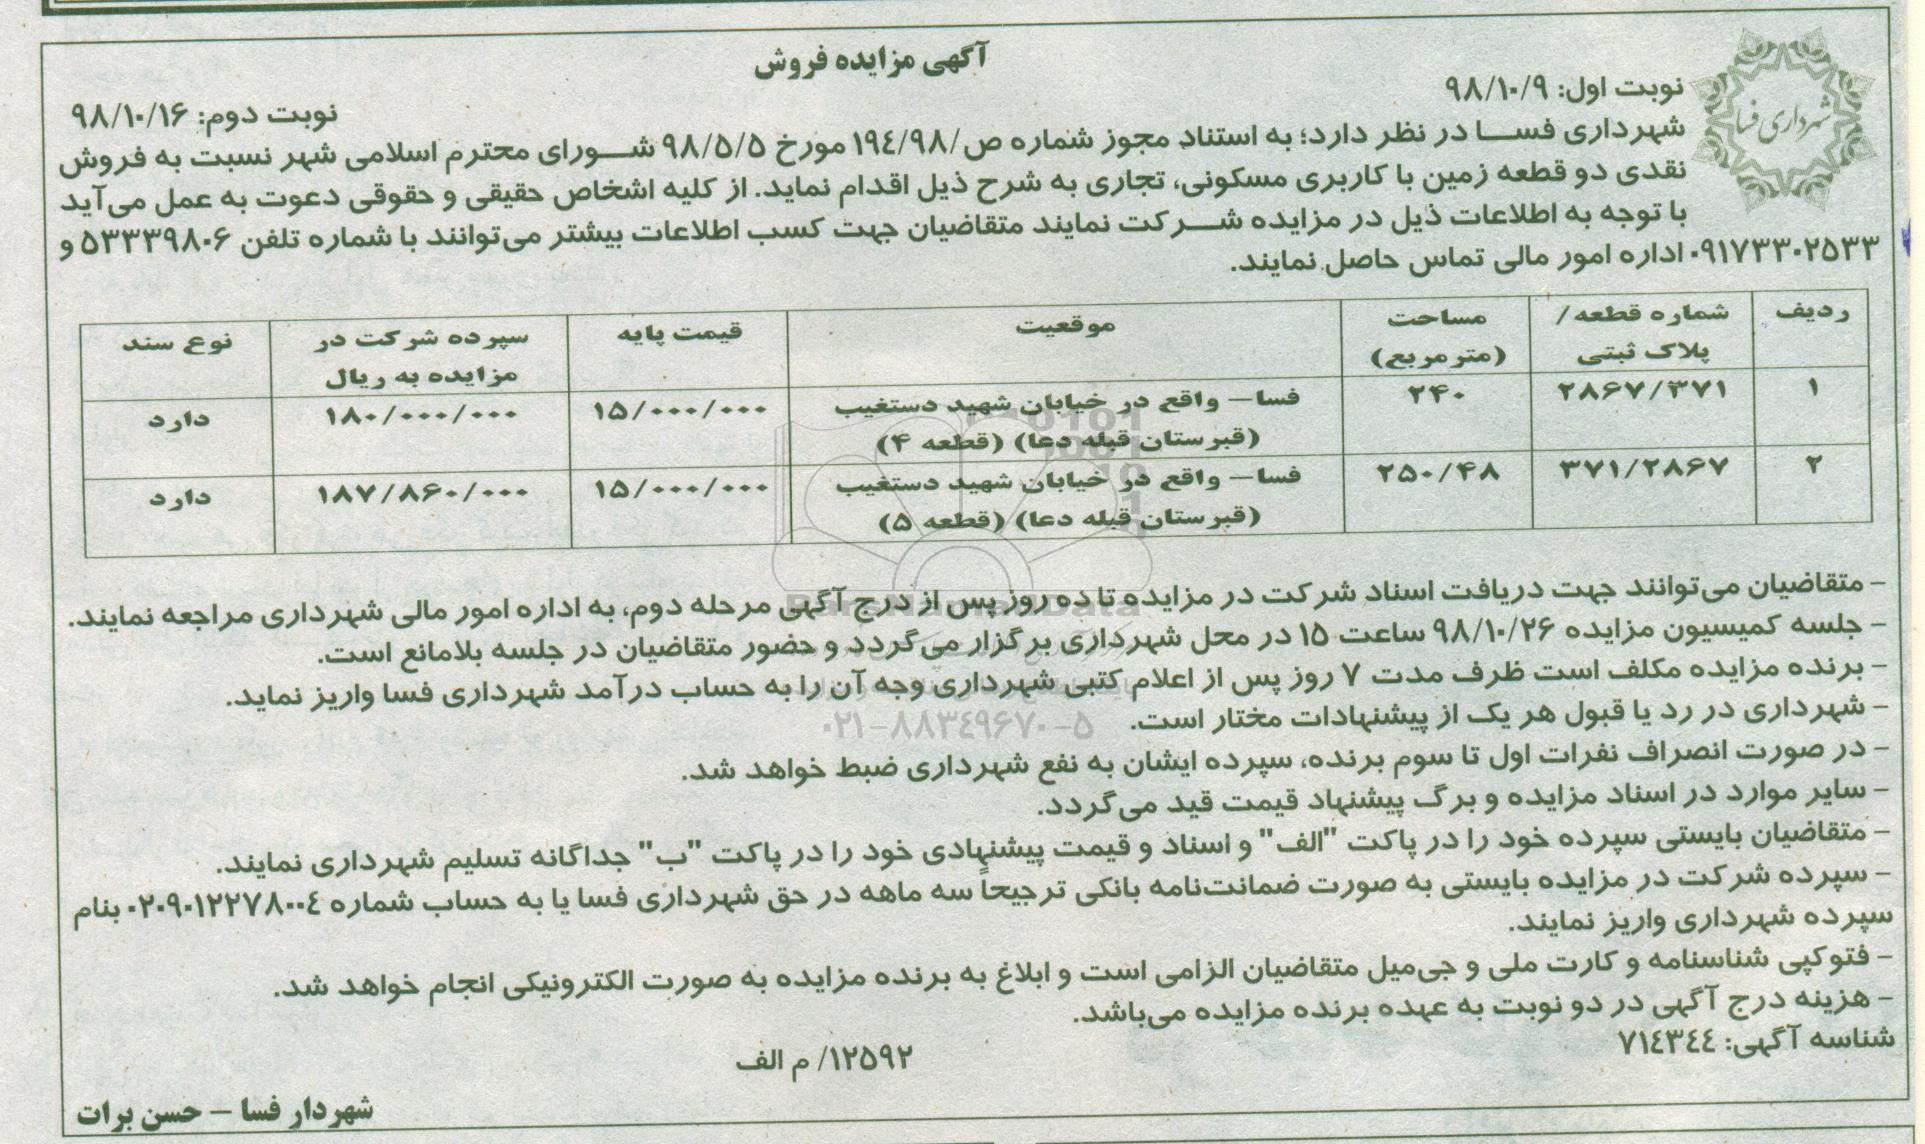 آگهی مزایده فروش
نوبت اول: ۹۸/۱۰/۹
نوبت دوم: ۹۸/۱۰/۱۶
شهرداری فسا
شهرداری فسا در نظر دارد؛ به استناد مجوز شماره ص/۱۹۴/۹۸ مورخ ۹۸/۵/۵ شورای محترم اسلامی شهر نسبت به فروش
نقدی دو قطعه زمین با کاربری مسکونی، تجاری به شرح ذیل اقدام نماید. از کلیه اشخاص حقیقی و حقوقی دعوت به عمل می‌آید
با توجه به اطلاعات ذیل در مزایده شرکت نمایند متقاضیان جهت کسب اطلاعات بیشتر می‌توانند با شماره تلفن ۵۳۳۳۹۸۰۶ و
۰۹۱۷۳۳۰۲۵۳۳ اداره امور مالی تماس حاصل نمایند.
ردیف | شماره قطعه/ پلاک ثبتی | مساحت (مترمربع) | موقعیت | قیمت پایه | سپرده شرکت در مزایده به ریال | نوع سند
۱ | ۲۸۶۷/۳۷۱ | ۲۴۰ | فسا– واقع در خیابان شهید دستغیب (قبرستان قبله دعا) (قطعه ۴) | ۱۵/۰۰۰/۰۰۰ | ۱۸۰/۰۰۰/۰۰۰ | دارد
۲ | ۳۷۱/۲۸۶۷ | ۲۵۰/۴۸ | فسا– واقع در خیابان شهید دستغیب (قبرستان قبله دعا) (قطعه ۵) | ۱۵/۰۰۰/۰۰۰ | ۱۸۷/۸۶۰/۰۰۰ | دارد
– متقاضیان می‌توانند جهت دریافت اسناد شرکت در مزایده تا ده روز پس از درج آگهی مرحله دوم، به اداره امور مالی شهرداری مراجعه نمایند.
– جلسه کمیسیون مزایده ۹۸/۱۰/۲۶ ساعت ۱۵ در محل شهرداری برگزار می‌گردد و حضور متقاضیان در جلسه بلامانع است.
– برنده مزایده مکلف است ظرف مدت ۷ روز پس از اعلام کتبی شهرداری وجه آن را به حساب درآمد شهرداری فسا واریز نماید.
– شهرداری در رد یا قبول هر یک از پیشنهادات مختار است.
– در صورت انصراف نفرات اول تا سوم برنده، سپرده ایشان به نفع شهرداری ضبط خواهد شد.
– سایر موارد در اسناد مزایده و برگ پیشنهاد قیمت قید می‌گردد.
– متقاضیان بایستی سپرده خود را در پاکت "الف" و اسناد و قیمت پیشنهادی خود را در پاکت "ب" جداگانه تسلیم شهرداری نمایند.
– سپرده شرکت در مزایده بایستی به صورت ضمانت‌نامه بانکی ترجیحاً سه ماهه در حق شهرداری فسا یا به حساب شماره ۰۲۰۹۰۱۲۲۷۸۰۰۴ بنام
سپرده شهرداری واریز نمایند.
– فتوکپی شناسنامه و کارت ملی و جی‌میل متقاضیان الزامی است و ابلاغ به برنده مزایده به صورت الکترونیکی انجام خواهد شد.
– هزینه درج آگهی در دو نوبت به عهده برنده مزایده می‌باشد.
شناسه آگهی: ۷۱۴۳۴۴
۱۲۵۹۲/ م الف
شهردار فسا – حسن برات
ParsNamadData
۰۲۱-۸۸۳۴۹۶۷۰-۵